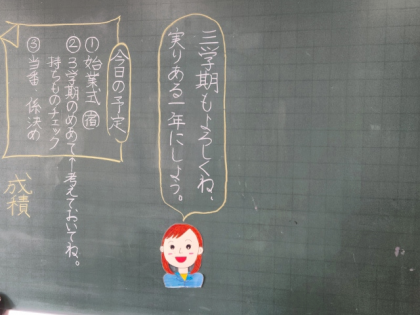 三学期もよろしくね、
実りある一年にしよう。
今日の予定
① 始業式 宿
② 3学期のめあて↑考えておいてね。
持ちものチェック
③ 当番・係決め
成積